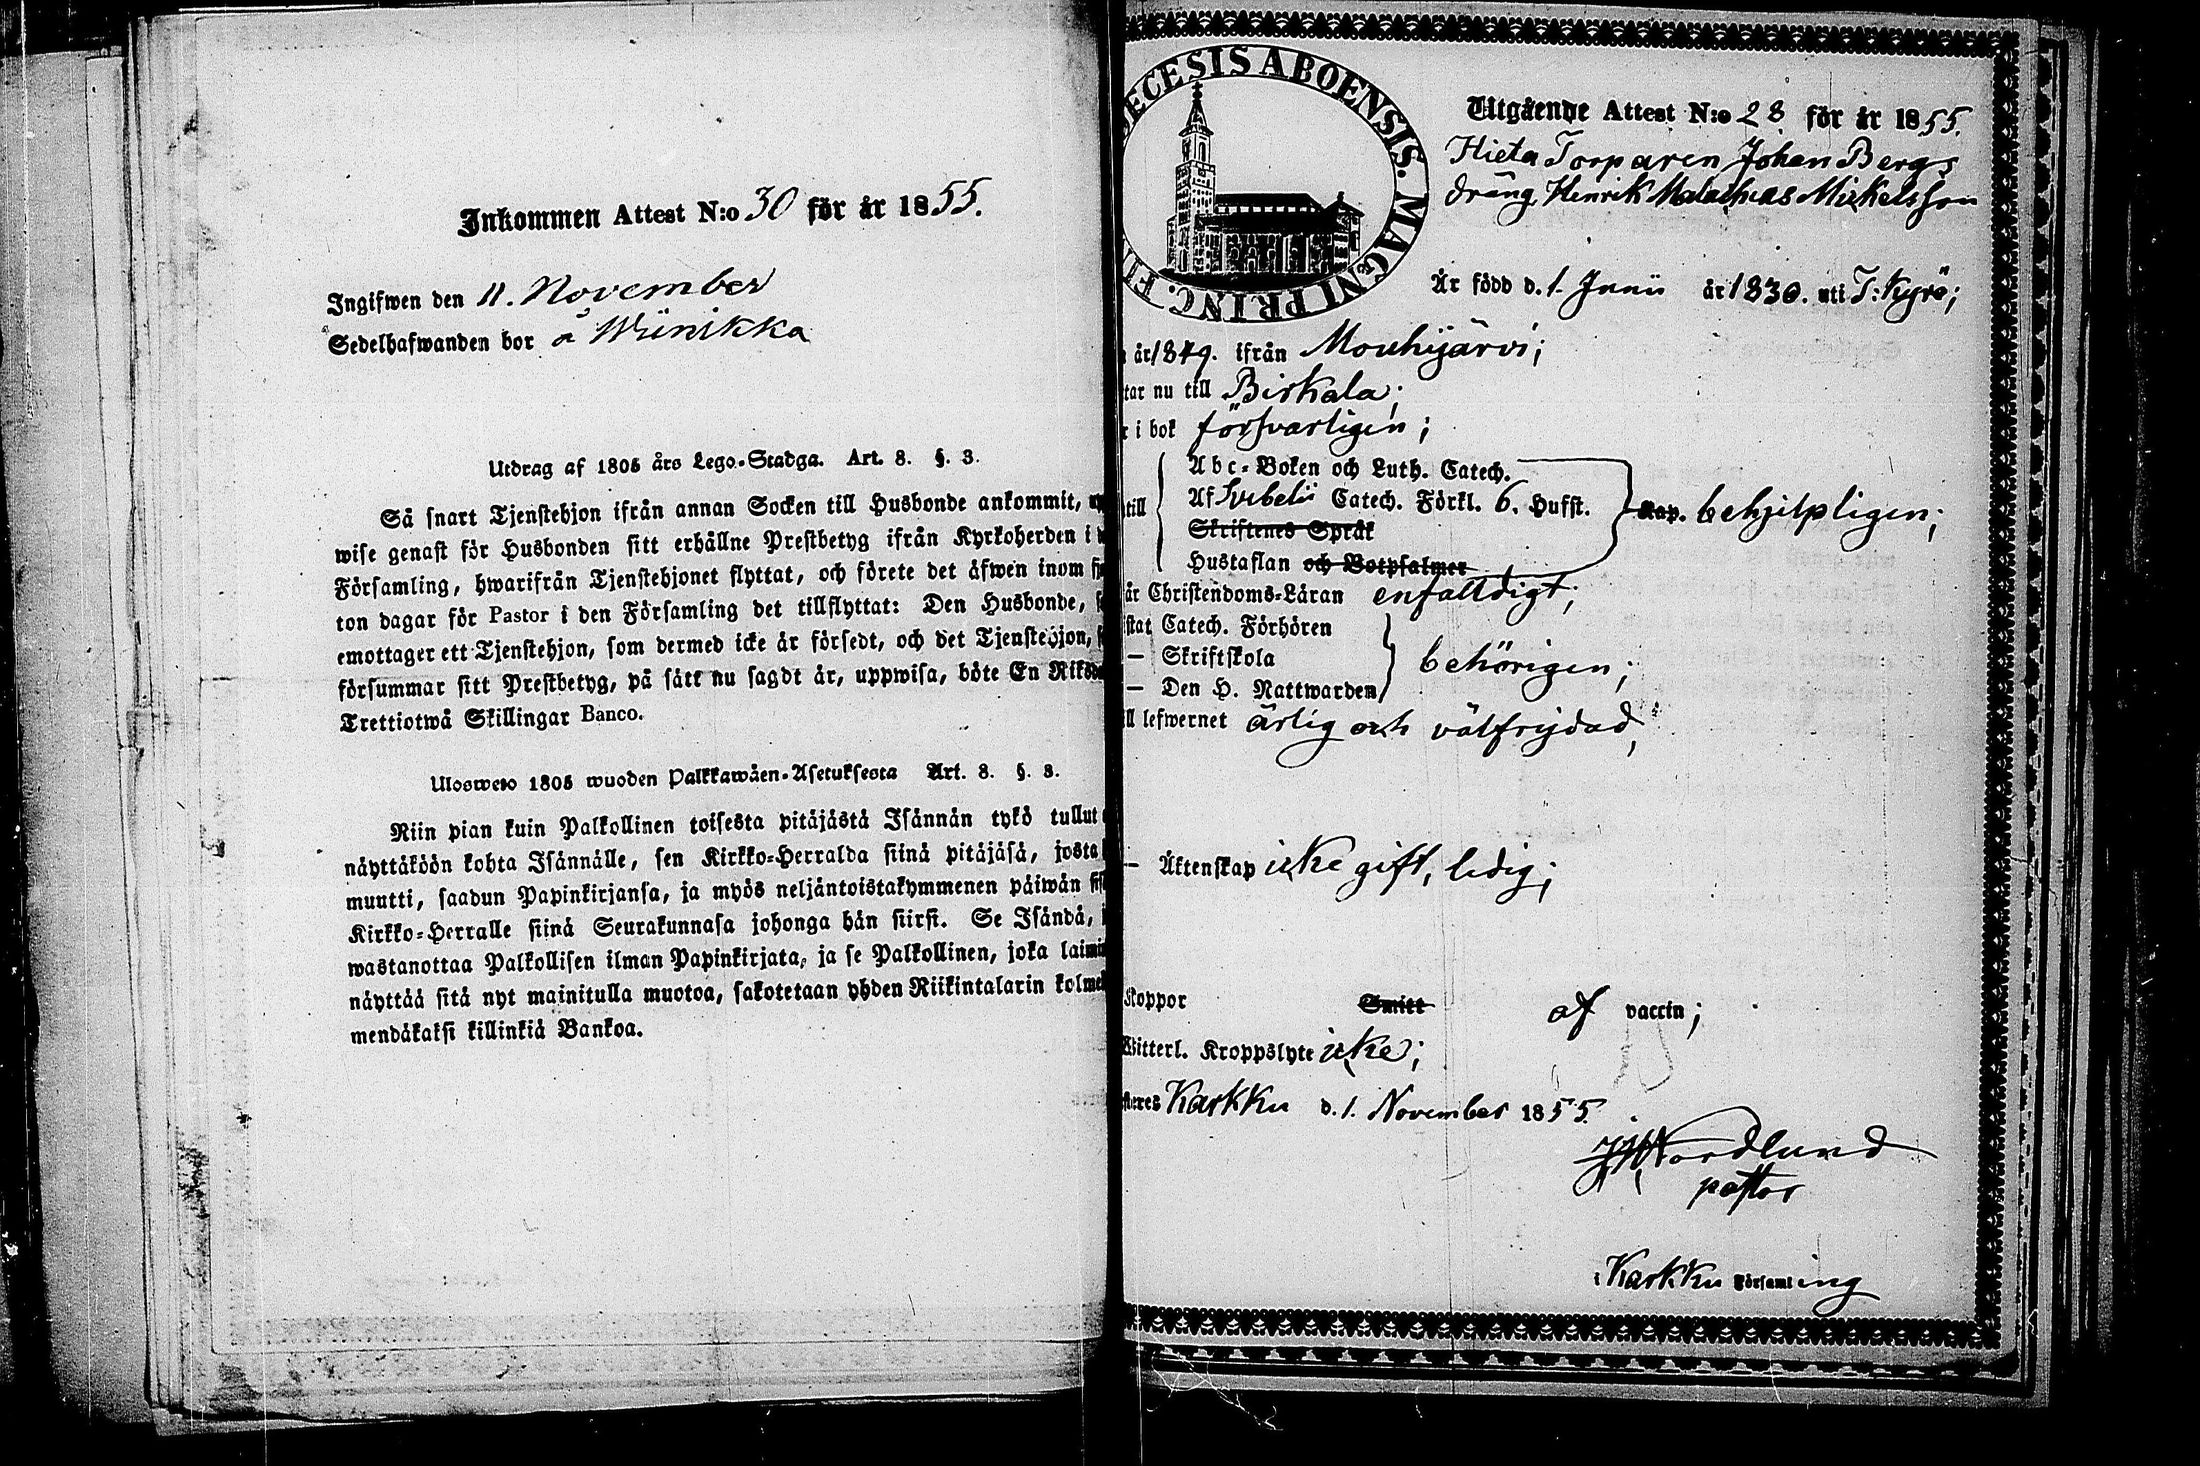 Inkommen Attest N:o 30 för år 1855.
Ingifwen den 11. November
Sedelhafwanden bor å Wiinikka
Utdrag af 1805 års Lego-Stadga. Art. 8. §. 3.
Så snart Tjenstehjon ifrån annan Socken till Husbonde ankommit,
wise genast för Husbonden sitt erhållne Prestbetyg ifrån Kyrkoherden i
Församling, hwarifrån Tjenstehjonet flyttat, och förete det äfwen inom
ton dagar för Pastor i den Församling det tillflyttat: Den Husbonde,
emottager ett Tjenstehjon, som dermed icke är försedt, och det Tjenstehjon,
försummar sitt Prestbetyg, på sätt nu sagdt är, uppwisa, böte En Riksd
Trettiotwå Skillingar Banco.
Ulosweto 1805 wuoden Palkkawäen-Asetuksesta Art. 8. §. 3.
Niin pian kuin Palkollinen toisesta pitäjästä Isännän tykö tullut
näyttäköön kohta Isännälle, sen Kirkko-Herralda siinä pitäjäsä, josta
muutti, saadun Papinkirjansa, ja myös neljäntoistakymmenen päiwän
Kirkko-Herralle siinä Seurakunnasa johonga hän siirsi. Se Isändä,
wastanottaa Palkollisen ilman Papinkirjata, ja se Palkollinen, joka laimi
näyttää sitä nyt mainitulla muotoa, sakotetaan yhden Riikintalarin kolme
mendäkaksi killinkiä Bankoa.
ECESIS ABOENSIS. MAGNI PRINC. FI
Utgående Attest N:o 28 för år 1855.
Hieta Torparen Johan Bergs
dräng Henrik Malachias Mickelsson
Är född d. 1. Junii år 1830. uti T: Kyrö;
år 1849. ifrån Mouhijärvi;
tar nu till Birkala;
r i bok försvarligen;
till
Abc-Boken och Luth. Catech.
Af Svebelii Catech. Förkl. 6. Hufst.
Skriftenes Språk
Hustaflan och Botpsalmer
Kap. behjelpligen;
år Christendoms-Läran enfalldigt;
stat Catech. Förhören
— Skriftskola
— Den H. Nattwarden
behörigen;
ll lefwernet ärlig och välfrejdad,
— Äktenskap icke gift, ledig;
Koppor Smitt af vaccin;
Witterl. Kroppslyte icke;
steres Karkku d. 1. November 1855.
Nordlund
pastor
i Karkku Församling